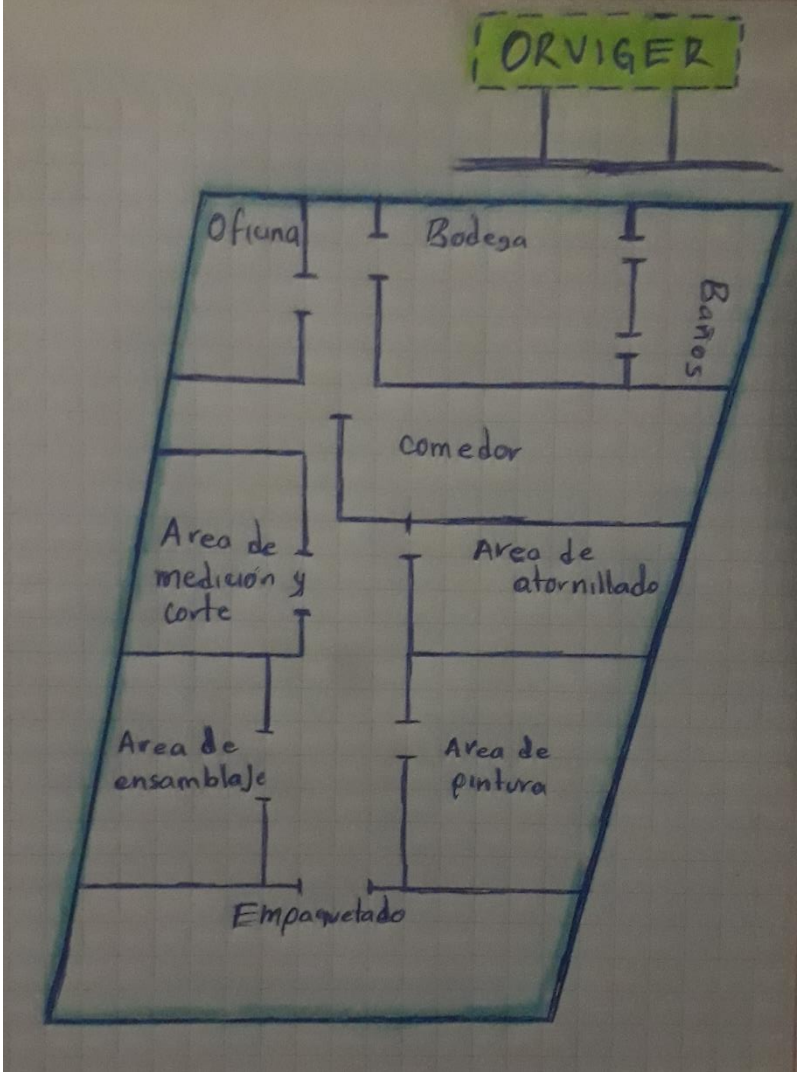 ORVIGER
Oficina
Bodega
Baños
comedor
Area de
medición y
corte
Area de
atornillado
Area de
ensamblaje
Area de
pintura
Empaquetado